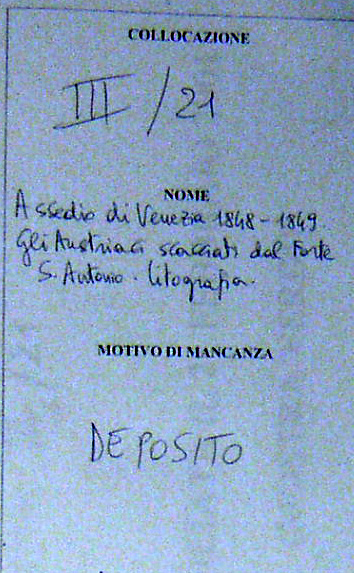 COLLOCAZIONE
III / 21
NOME
Assedio di Venezia 1848-1849.
Gli Austriaci scacciati dal Forte
S. Antonio. litografia.
MOTIVO DI MANCANZA
DEPOSITO